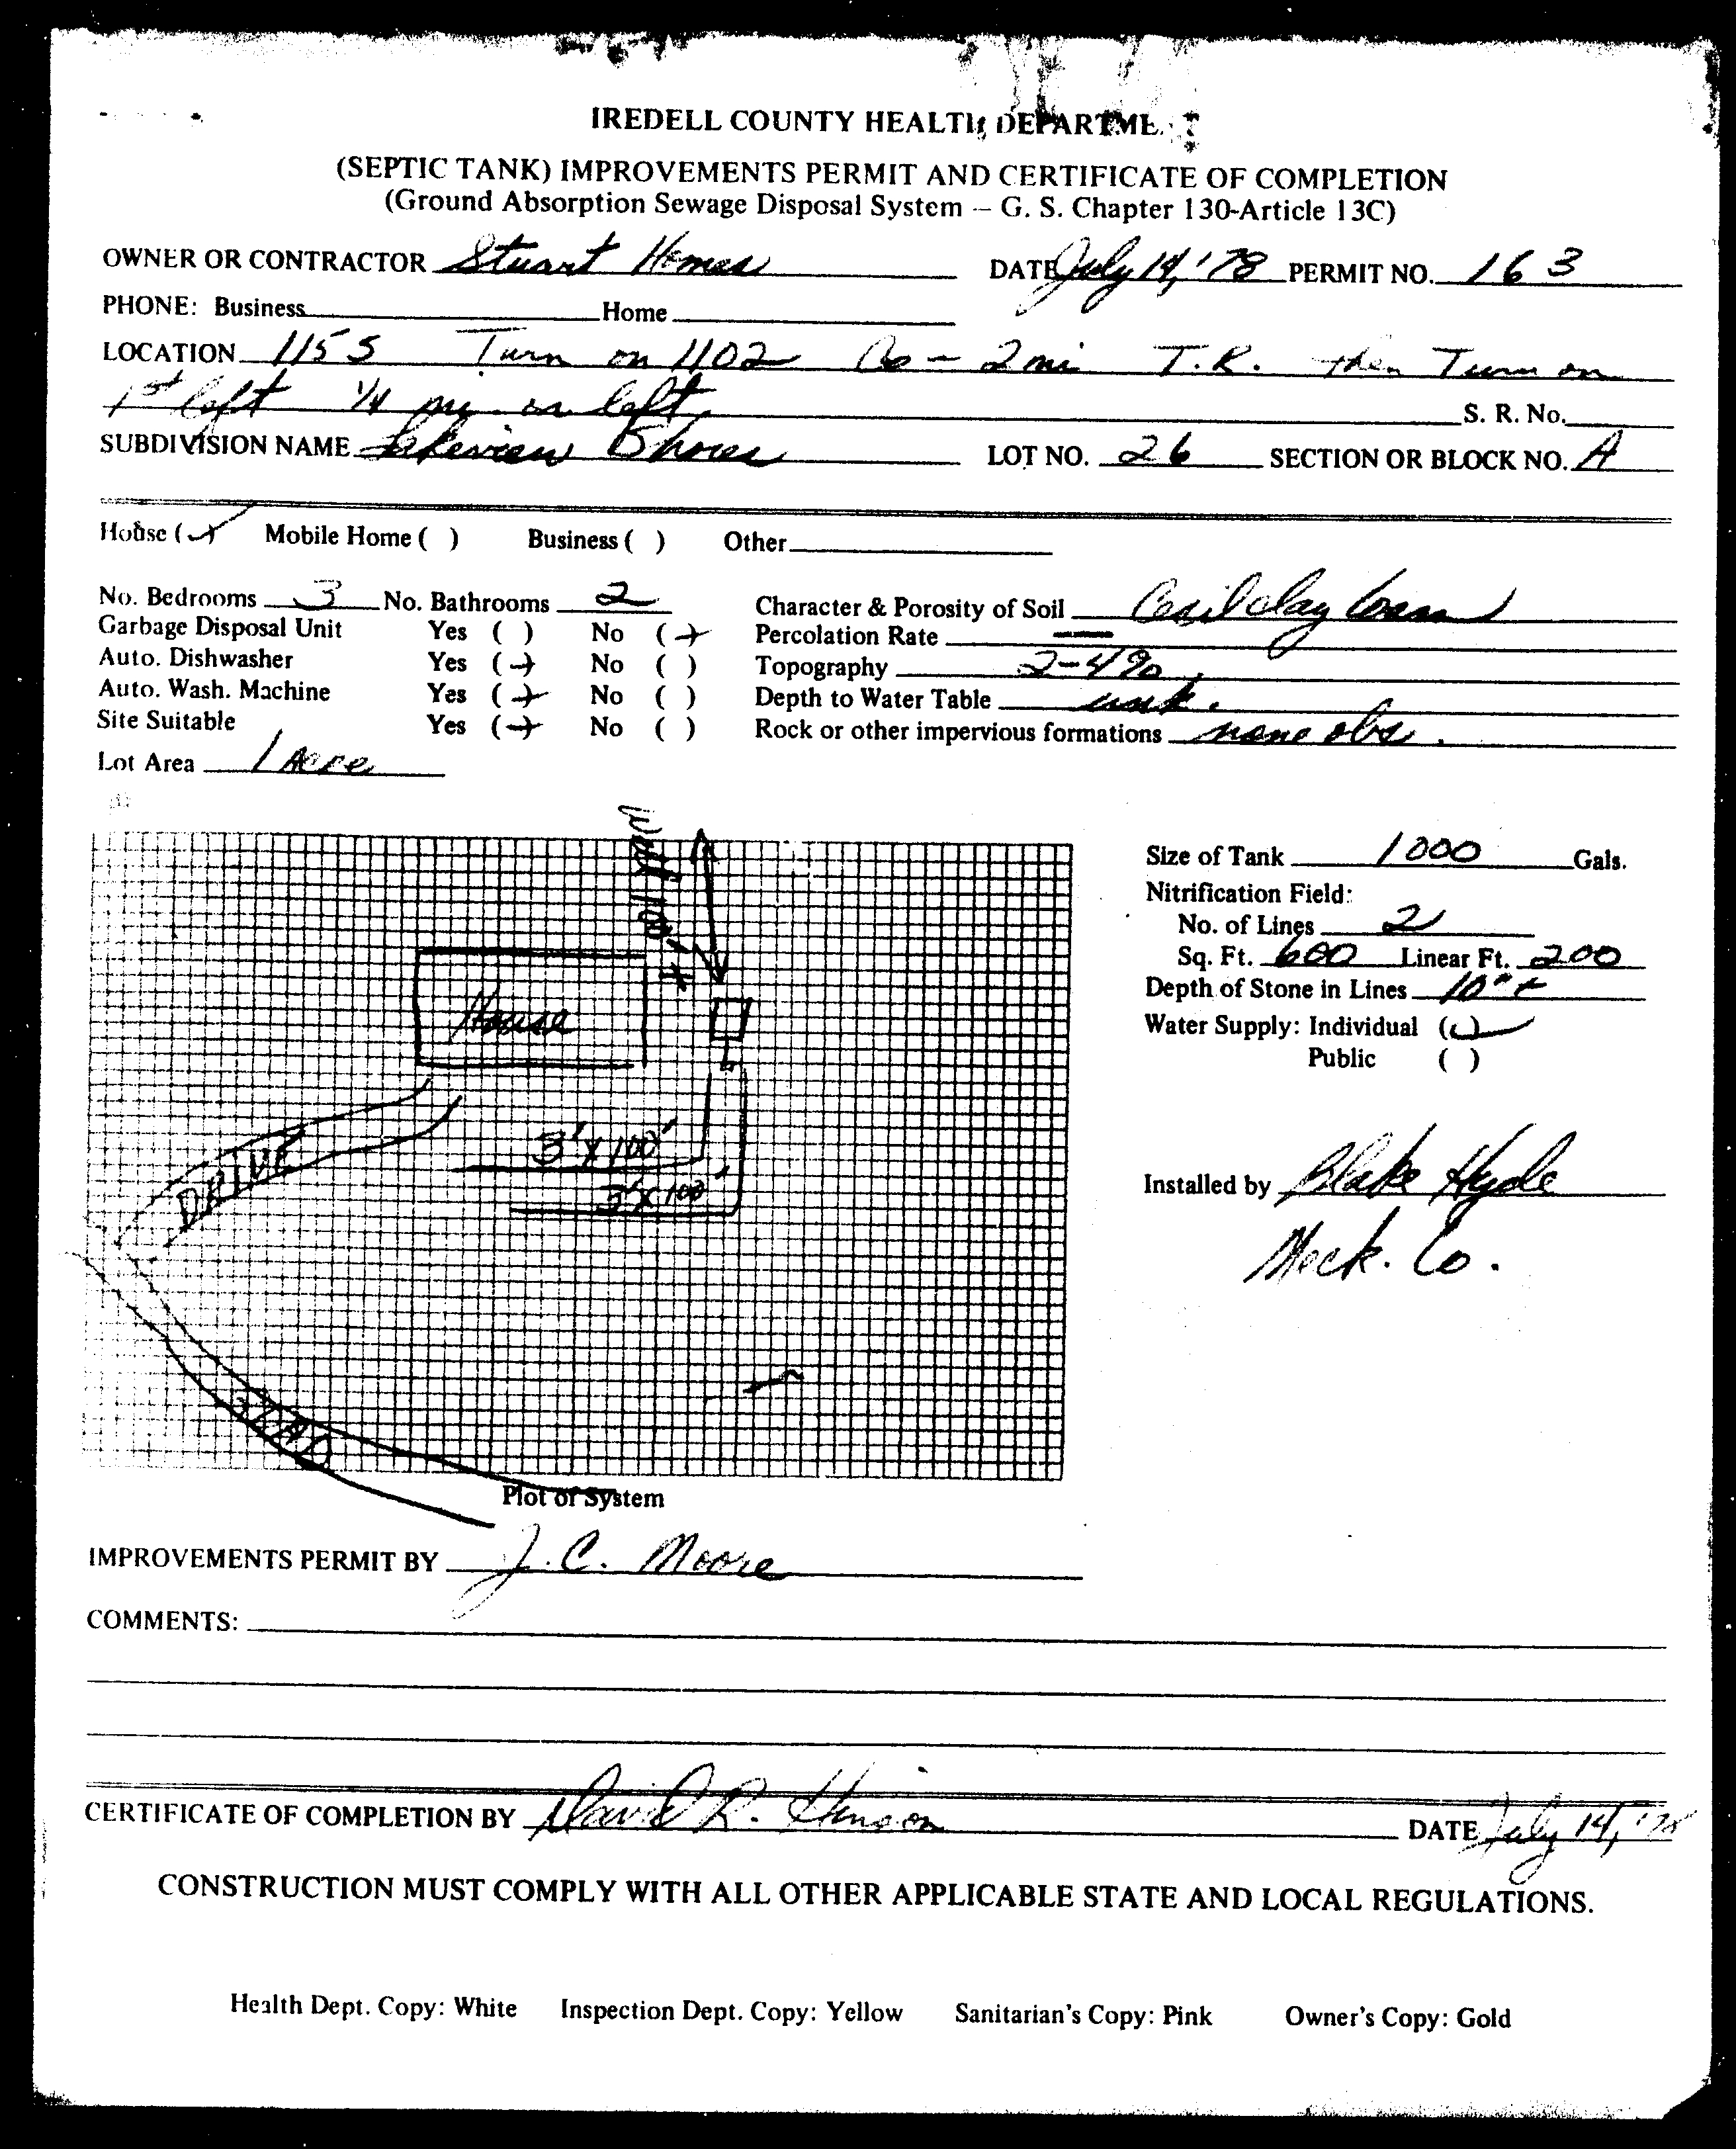 IREDELL COUNTY HEALTH DEPARTMENT
(SEPTIC TANK) IMPROVEMENTS PERMIT AND CERTIFICATE OF COMPLETION
(Ground Absorption Sewage Disposal System – G. S. Chapter 130-Article 13C)
OWNER OR CONTRACTOR Stuart Homes DATE July 14, '78 PERMIT NO. 163
PHONE: Business Home
LOCATION 115 S Turn on 1102 Go - 2 mi T.R. then Turn on
1st left 1/4 mi. on left, S. R. No.
SUBDIVISION NAME Lakeview Shores LOT NO. 26 SECTION OR BLOCK NO. A
House (✓) Mobile Home ( ) Business ( ) Other
No. Bedrooms 3 No. Bathrooms 2 Character & Porosity of Soil Cecil clay loam
Garbage Disposal Unit Yes ( ) No (+) Percolation Rate —
Auto. Dishwasher Yes (+) No ( ) Topography 2-4%
Auto. Wash. Machine Yes (+) No ( ) Depth to Water Table unk.
Site Suitable Yes (+) No ( ) Rock or other impervious formations none obs.
Lot Area 1 Acre
Well 100' +
House
DRIVE
3' x 100'
3' x 100'
ROAD
Plot of System
Size of Tank 1000 Gals.
Nitrification Field:
No. of Lines 2
Sq. Ft. 600 Linear Ft. 200
Depth of Stone in Lines 10" +
Water Supply: Individual (✓)
Public ( )
Installed by Blake Hyde
Meck. Co.
IMPROVEMENTS PERMIT BY J. C. Moore
COMMENTS:
CERTIFICATE OF COMPLETION BY David R. Hinson DATE July 14, '78
CONSTRUCTION MUST COMPLY WITH ALL OTHER APPLICABLE STATE AND LOCAL REGULATIONS.
Health Dept. Copy: White Inspection Dept. Copy: Yellow Sanitarian's Copy: Pink Owner's Copy: Gold